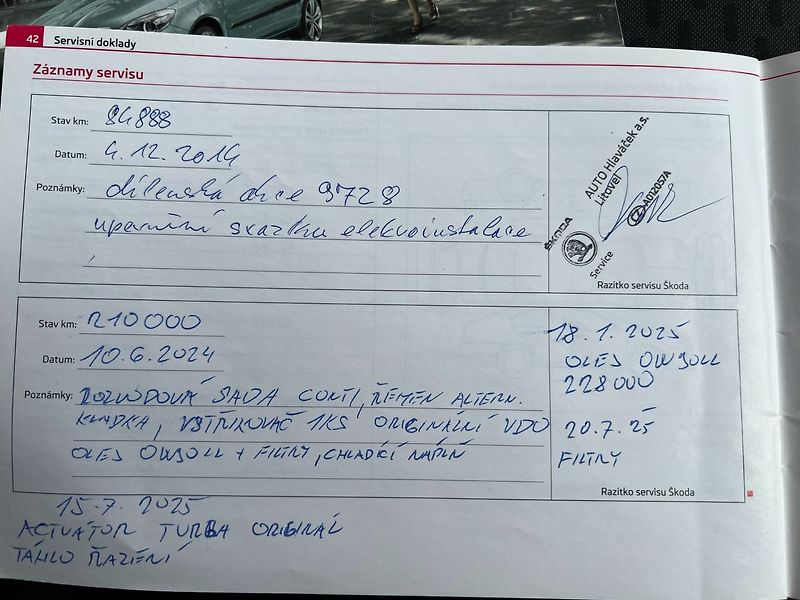 42 Servisní doklady
Záznamy servisu
Stav km: 84888
Datum: 4.12.2014
Poznámky: dílenská akce 97Z8
upevnění svazku elektroinstalace
AUTO Hlaváček a.s.
Litovel
A012057A
ŠKODA
Service
Razítko servisu Škoda
Stav km: 210000
Datum: 10.6.2024
Poznámky: ROZVODOVÁ SADA CONTI, ŘEMEN ALTERN.
KLADKA, VSTŘIKOVAČ 1KS ORIGINÁLNÍ VDO
OLEJ 0W30LL + FILTRY, CHLADÍCÍ NÁPLŇ
18.1.2025
OLEJ 0W30LL
228000
20.7.25
FILTRY
Razítko servisu Škoda
15.7.2025
ACTUÁTOR TURBA ORIGINÁL
TÁHLO ŘAZENÍ